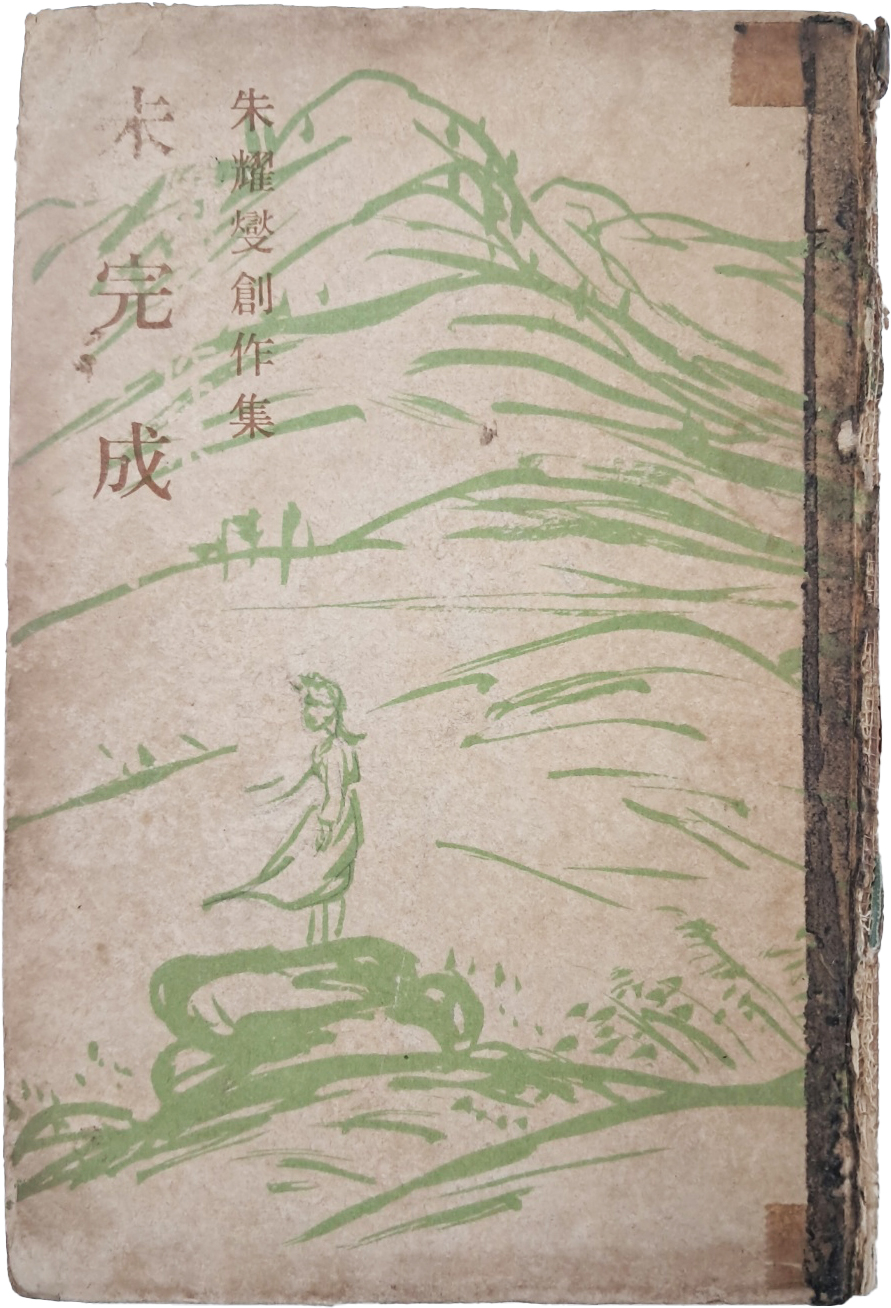 朱耀燮創作集
未完成